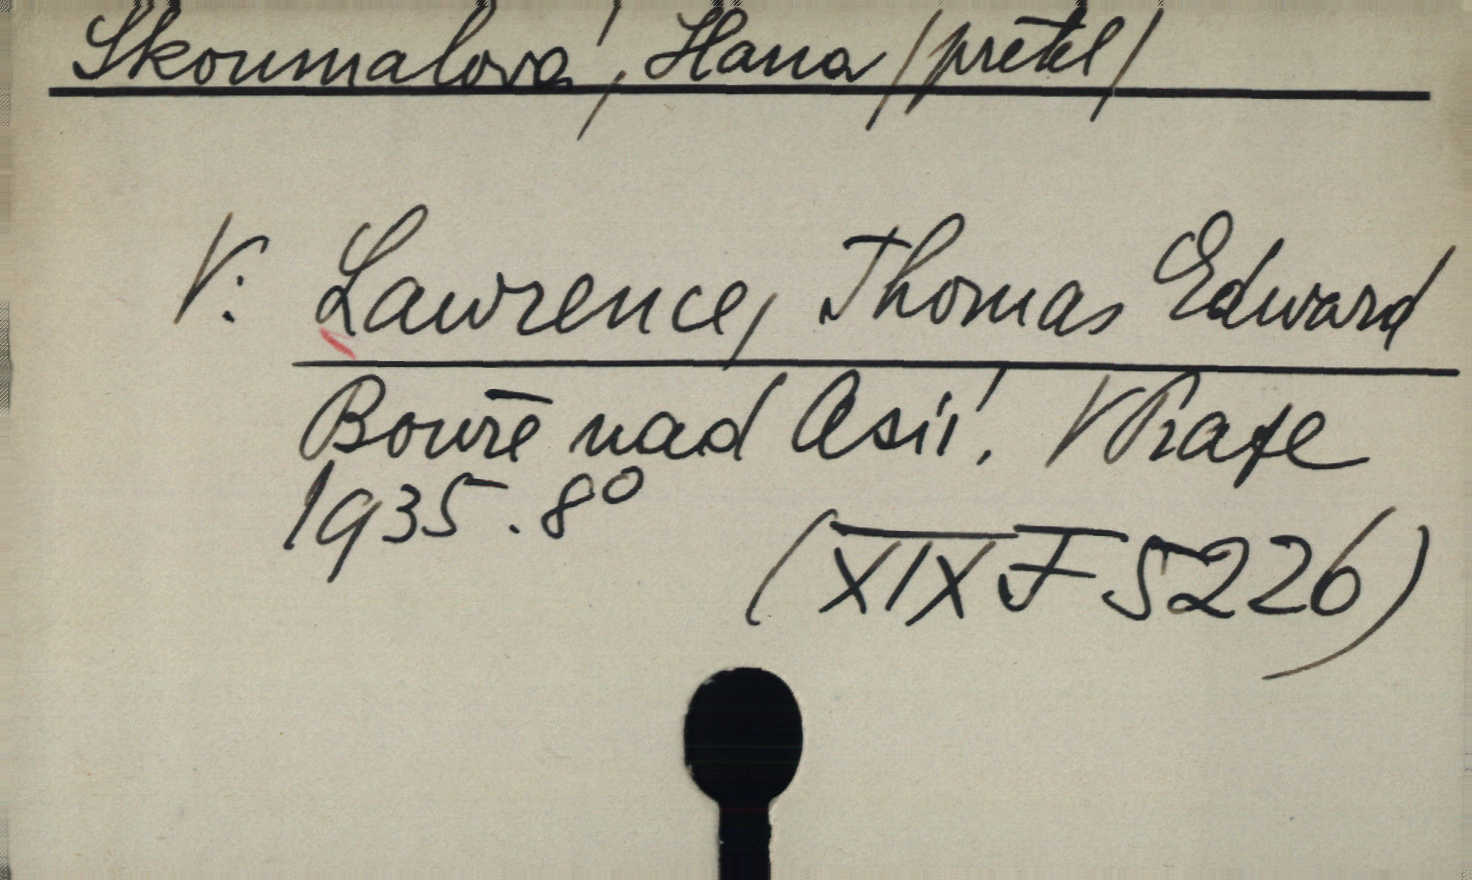 Skoumalová, Hana /přetel/
V: Lawrence, Thomas Edward
Bouře nad Asií. V Praze
1935. 8°
(XIX F 5226)